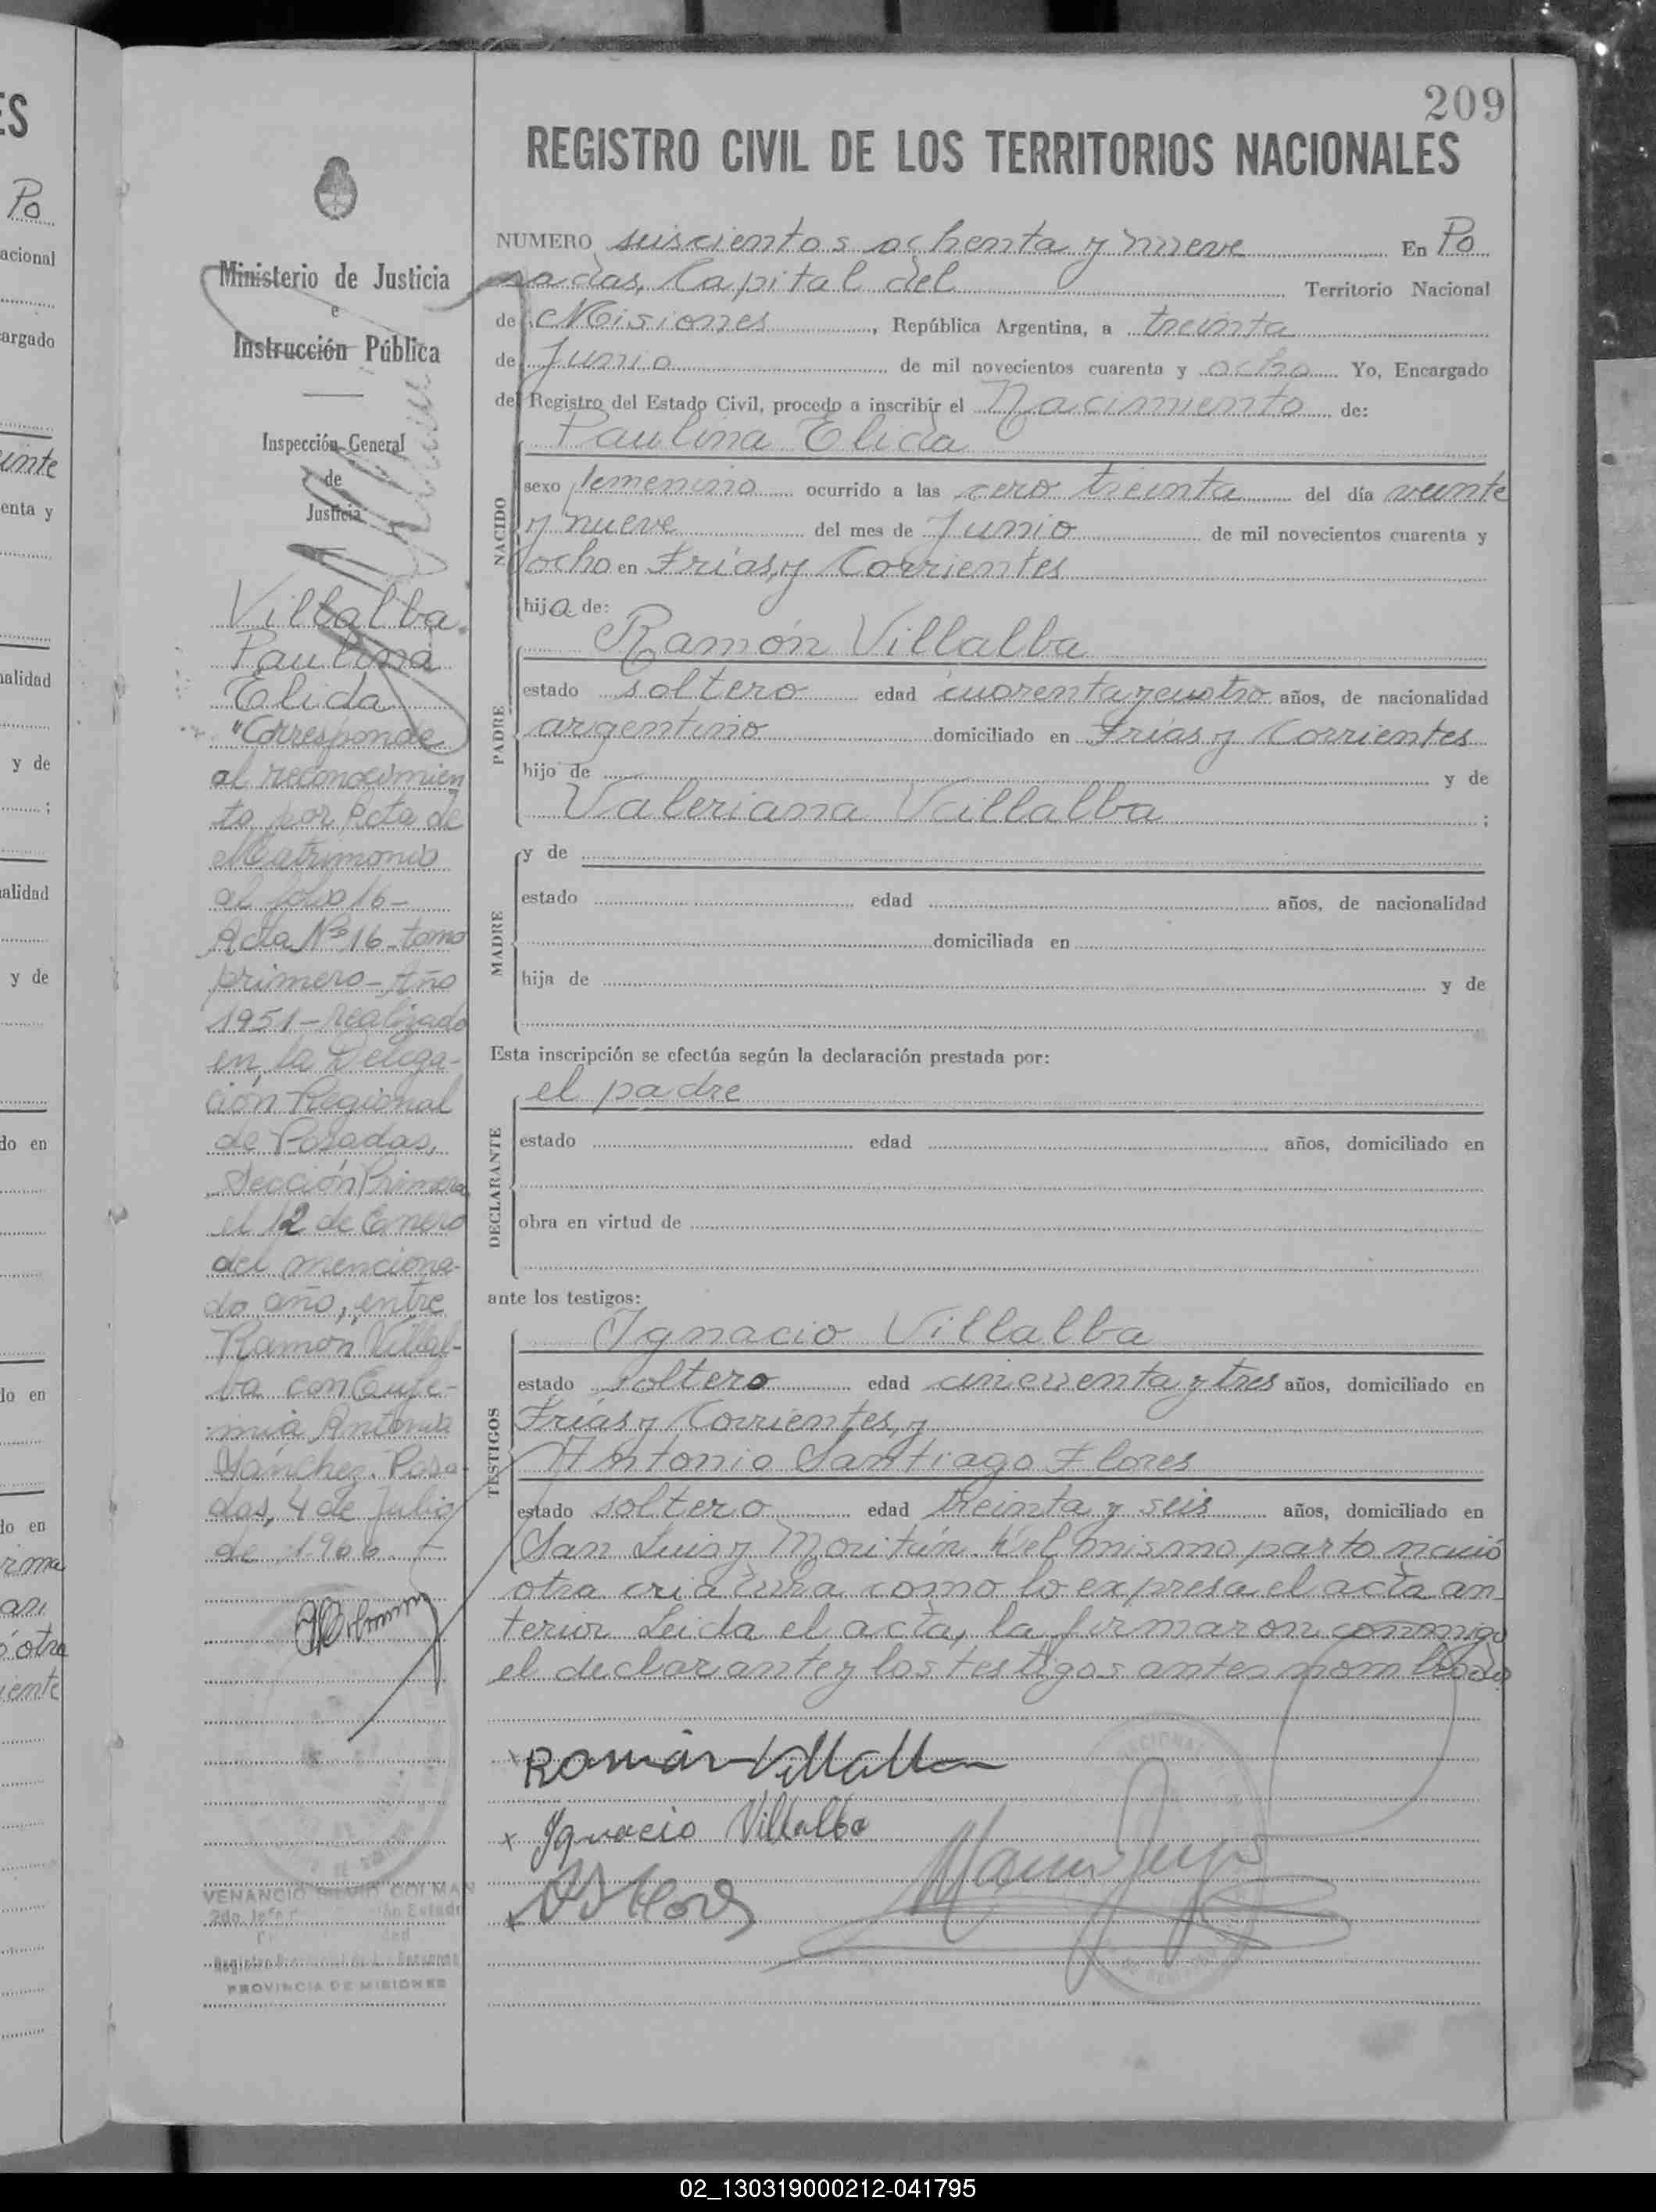 209
REGISTRO CIVIL DE LOS TERRITORIOS NACIONALES
Ministerio de Justicia
e
Instrucción Pública
Inspección General
de
Justicia
Villalba
Paulina
Elida
"Corresponde
al reconocimien
to por Acta de
Matrimonio
al folio 16-
Acta Nº 16-tomo
primero-Año
1951-realizado
en la Delega-
ción Regional
de Posadas,
Sección Primera
el 12 de Enero
del menciona-
do año, entre
Ramón Villal-
ba con Eufe-
mia Antonia
Sánchez. Posa-
das, 4 de Julio
de 1966
VENANCIO COLMAN
PROVINCIA DE MISIONES
NUMERO seiscientos ochenta y nueve En Po
sadas, Capital del Territorio Nacional
de Misiones, República Argentina, a treinta
de Junio de mil novecientos cuarenta y ocho Yo, Encargado
del Registro del Estado Civil, procedo a inscribir el Nacimiento de:
Paulina Elida
NACIDO
sexo femenino ocurrido a las cero treinta del día veinte
y nueve del mes de Junio de mil novecientos cuarenta y
ocho en Frías y Corrientes
hija de:
Ramón Villalba
PADRE
estado soltero edad cuarenta y cuatro años, de nacionalidad
argentino domiciliado en Frías y Corrientes
hijo de y de
Valeriana Villalba ;
MADRE
y de
estado edad años, de nacionalidad
domiciliada en
hija de y de
Esta inscripción se efectúa según la declaración prestada por:
el padre
DECLARANTE
estado edad años, domiciliado en
obra en virtud de
ante los testigos:
Ignacio Villalba
TESTIGOS
estado soltero edad cincuenta y tres años, domiciliado en
Frías y Corrientes, y
Antonio Santiago Flores
estado soltero edad treinta y seis años, domiciliado en
San Luis y Moritán. Del mismo parto nació
otra criatura como lo expresa el acta an
terior Leida el acta, la firmaron conmigo
el declarante y los testigos antes nombrados
Ramón Villalba
x Ignacio Villalba
x A S Flores
02_130319000212-041795